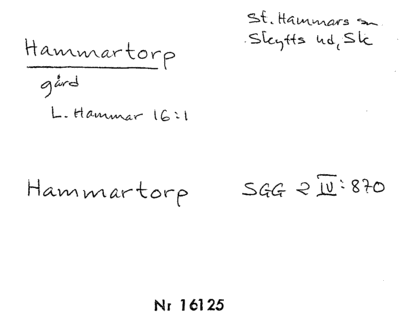 Hammartorp
St. Hammars sn
Skytts hd, Sk
gård
L. Hammar 16:1
Hammartorp SGG 2 IV: 870
Nr 16125